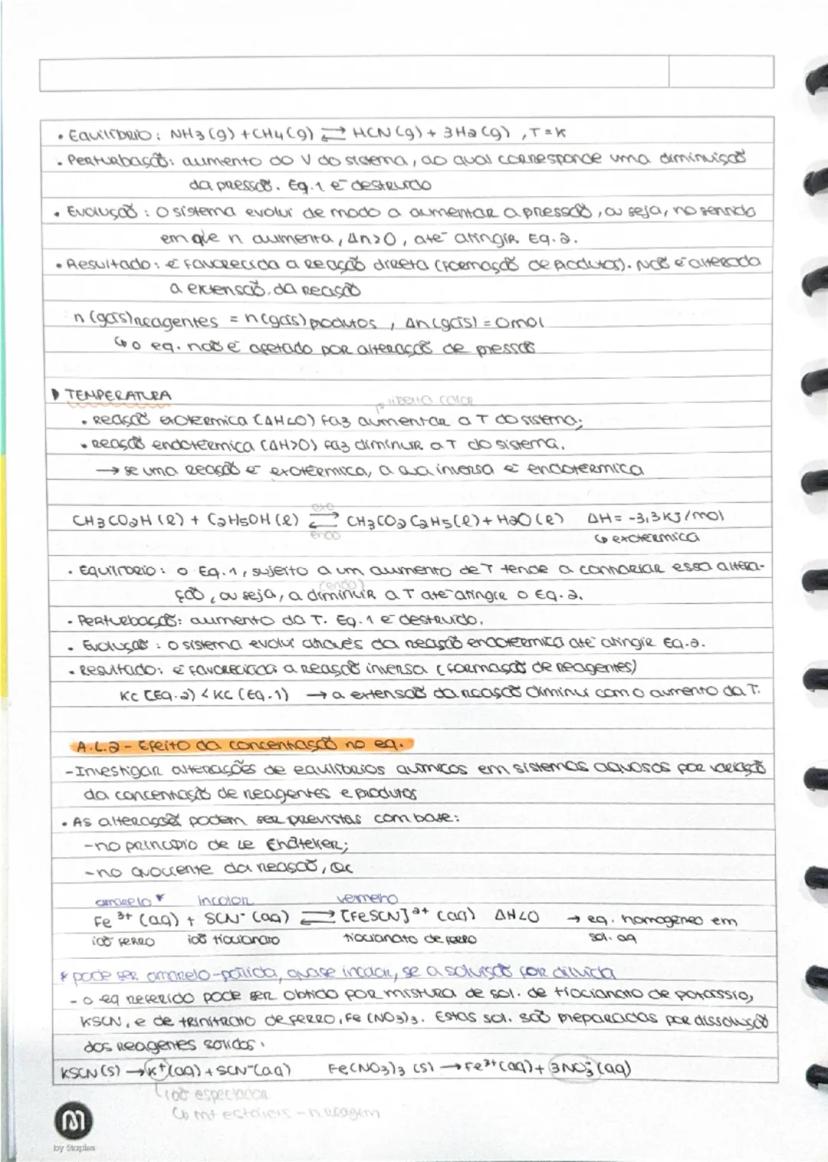 • Equilíbrio: NH3(g) + CH4(g) ⇄ HCN(g) + 3H2(g) , T = K
• Perturbação: aumento do V do sistema, ao qual corresponde uma diminuição
da pressão. Eq.1 é destruído
• Evolução: O sistema evolui de modo a aumentar a pressão, ou seja, no sentido
em que n aumenta, Δn>0, até atingir Eq.2.
• Resultado: é favorecida a reação direta (formação de produtos). Não é alterada
a extensão da reação
n(gás)reagentes = n(gás)produtos, Δn(gás) = 0mol
↳ o eq. não é afetado por alteração de pressão
▸ TEMPERATURA
liberta calor
• Reação exotérmica (ΔH<0) faz aumentar a T do sistema;
• Reação endotérmica (ΔH>0) faz diminuir a T do sistema.
→ se uma reação é exotérmica, a sua inversa é endotérmica
exo
CH3CO2H(l) + C2H5OH(l) ⇄ CH3CO2C2H5(l) + H2O(l) ΔH = -3,3KJ/mol
endo ↳ exotérmica
• Equilíbrio: o Eq.1, sujeito a um aumento de T tende a contrariar essa altera-
(endo)
ção, ou seja, a diminuir a T até atingir o Eq.2.
• Perturbação: aumento da T. Eq.1 é destruído.
• Evolução: o sistema evolui através da reação endotérmica até atingir Eq.2.
• Resultado: é favorecida a reação inversa (formação de reagentes)
Kc (Eq.2) < Kc (Eq.1) → a extensão da reação diminui com o aumento da T.
A.L.2 - Efeito da concentração no eq.
- Investigar alterações de equilíbrios químicos em sistemas aquosos por variação
da concentração de reagentes e produtos
• As alterações podem ser previstas com base:
- no princípio de Le Châtelier;
- no quociente da reação, Qc
amarelo * incolor vermelho
Fe3+ (aq) + SCN- (aq) ⇄ [FeSCN]2+ (aq) ΔH<0 → eq. homogéneo em
ião ferro ião tiocianato tiocianato de ferro sol. aq
* pode ser amarelo-pálida, quase incolor, se a solução for diluída
- o eq referido pode ser obtido por mistura de sol. de tiocianato de potássio,
KSCN, e de trinitrato de ferro, Fe(NO3)3. Estas sol. são preparadas por dissolução
dos reagentes sólidos.
KSCN(s) → K+(aq) + SCN-(aq) Fe(NO3)3 (s) → Fe3+(aq) + 3NO3-(aq)
ião espectador
↳ mt estáveis - n reagem
by Staples